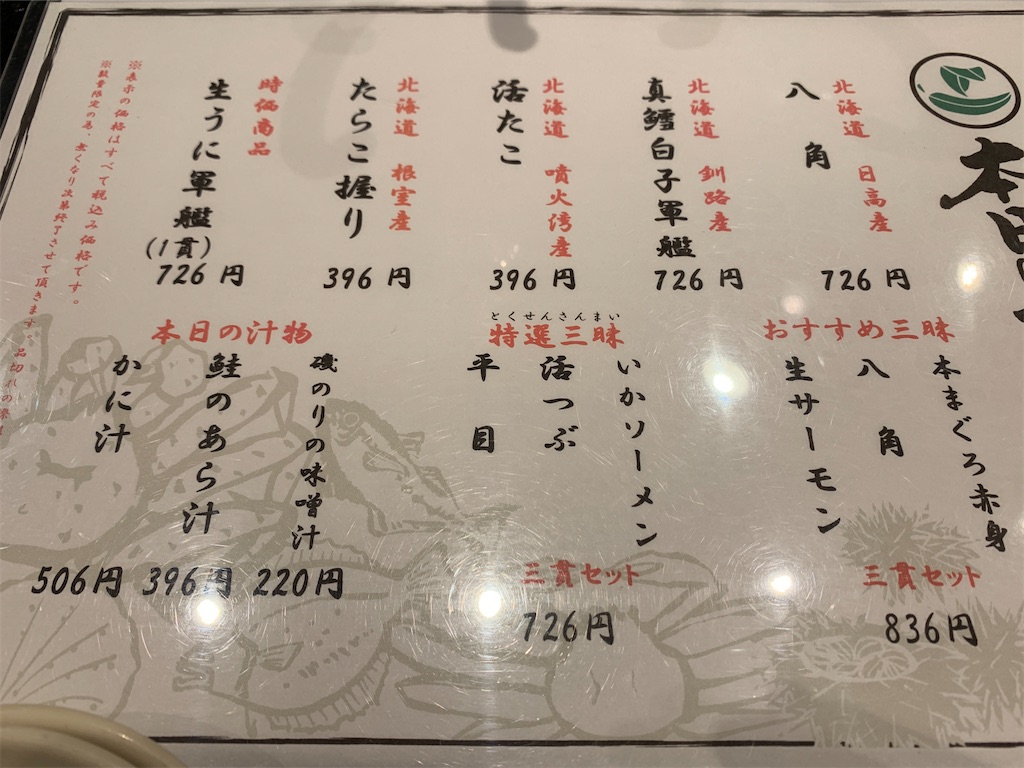 本日
北海道 日高産
八角
726円
北海道 釧路産
真鱈白子軍艦
726円
北海道 噴火湾産
活たこ
396円
北海道 根室産
たらこ握り
396円
時価商品
生うに軍艦
(1貫)
726円
※表示の価格はすべて税込み価格です。
※数量限定の為、無くなり次第終了させて頂きます。品切れの際
おすすめ三昧
本まぐろ赤身
八角
生サーモン
三貫セット
836円
とくせんさんまい
特選三昧
いかソーメン
活つぶ
平目
三貫セット
726円
本日の汁物
磯のりの味噌汁
220円
鮭のあら汁
396円
かに汁
506円